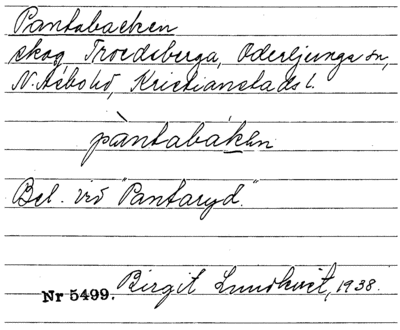 Pantabacken
skog, Troedsberga, Oderljunga sn,
N. Åsbo hd, Kristianstads l.
pàntabáken
Bel. vid "Pantaryd."
Nr 5499. Birgit Lundkvist, 1938.